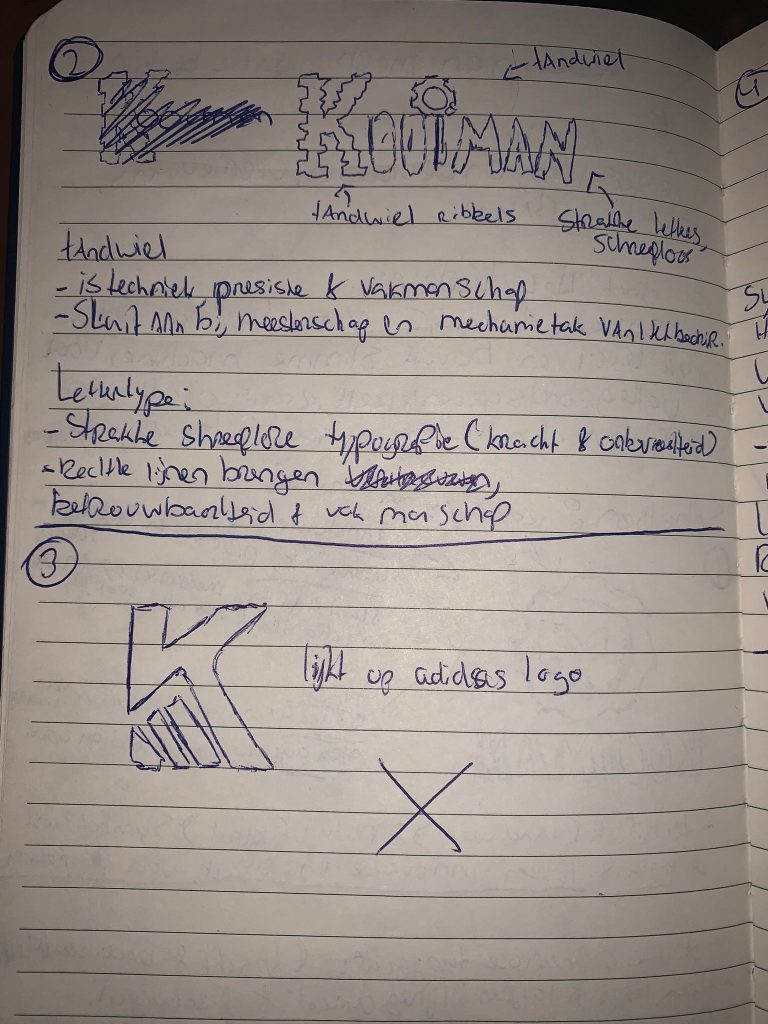 2
tandwiel
KOOiMAN
tandwiel ribbels
Strakke letters,
schreefloos
tandwiel
- is techniek presisie & vakmanschap
- Sluit aan bij meesterschap en mechanietak van het bedrijf.
Lettertype:
- Strakke shreeflose typografie (kracht &
- Rechte lijnen brengen
betrouwbaarheid & vakmanschap
3
K
lijkt op adidas logo
4